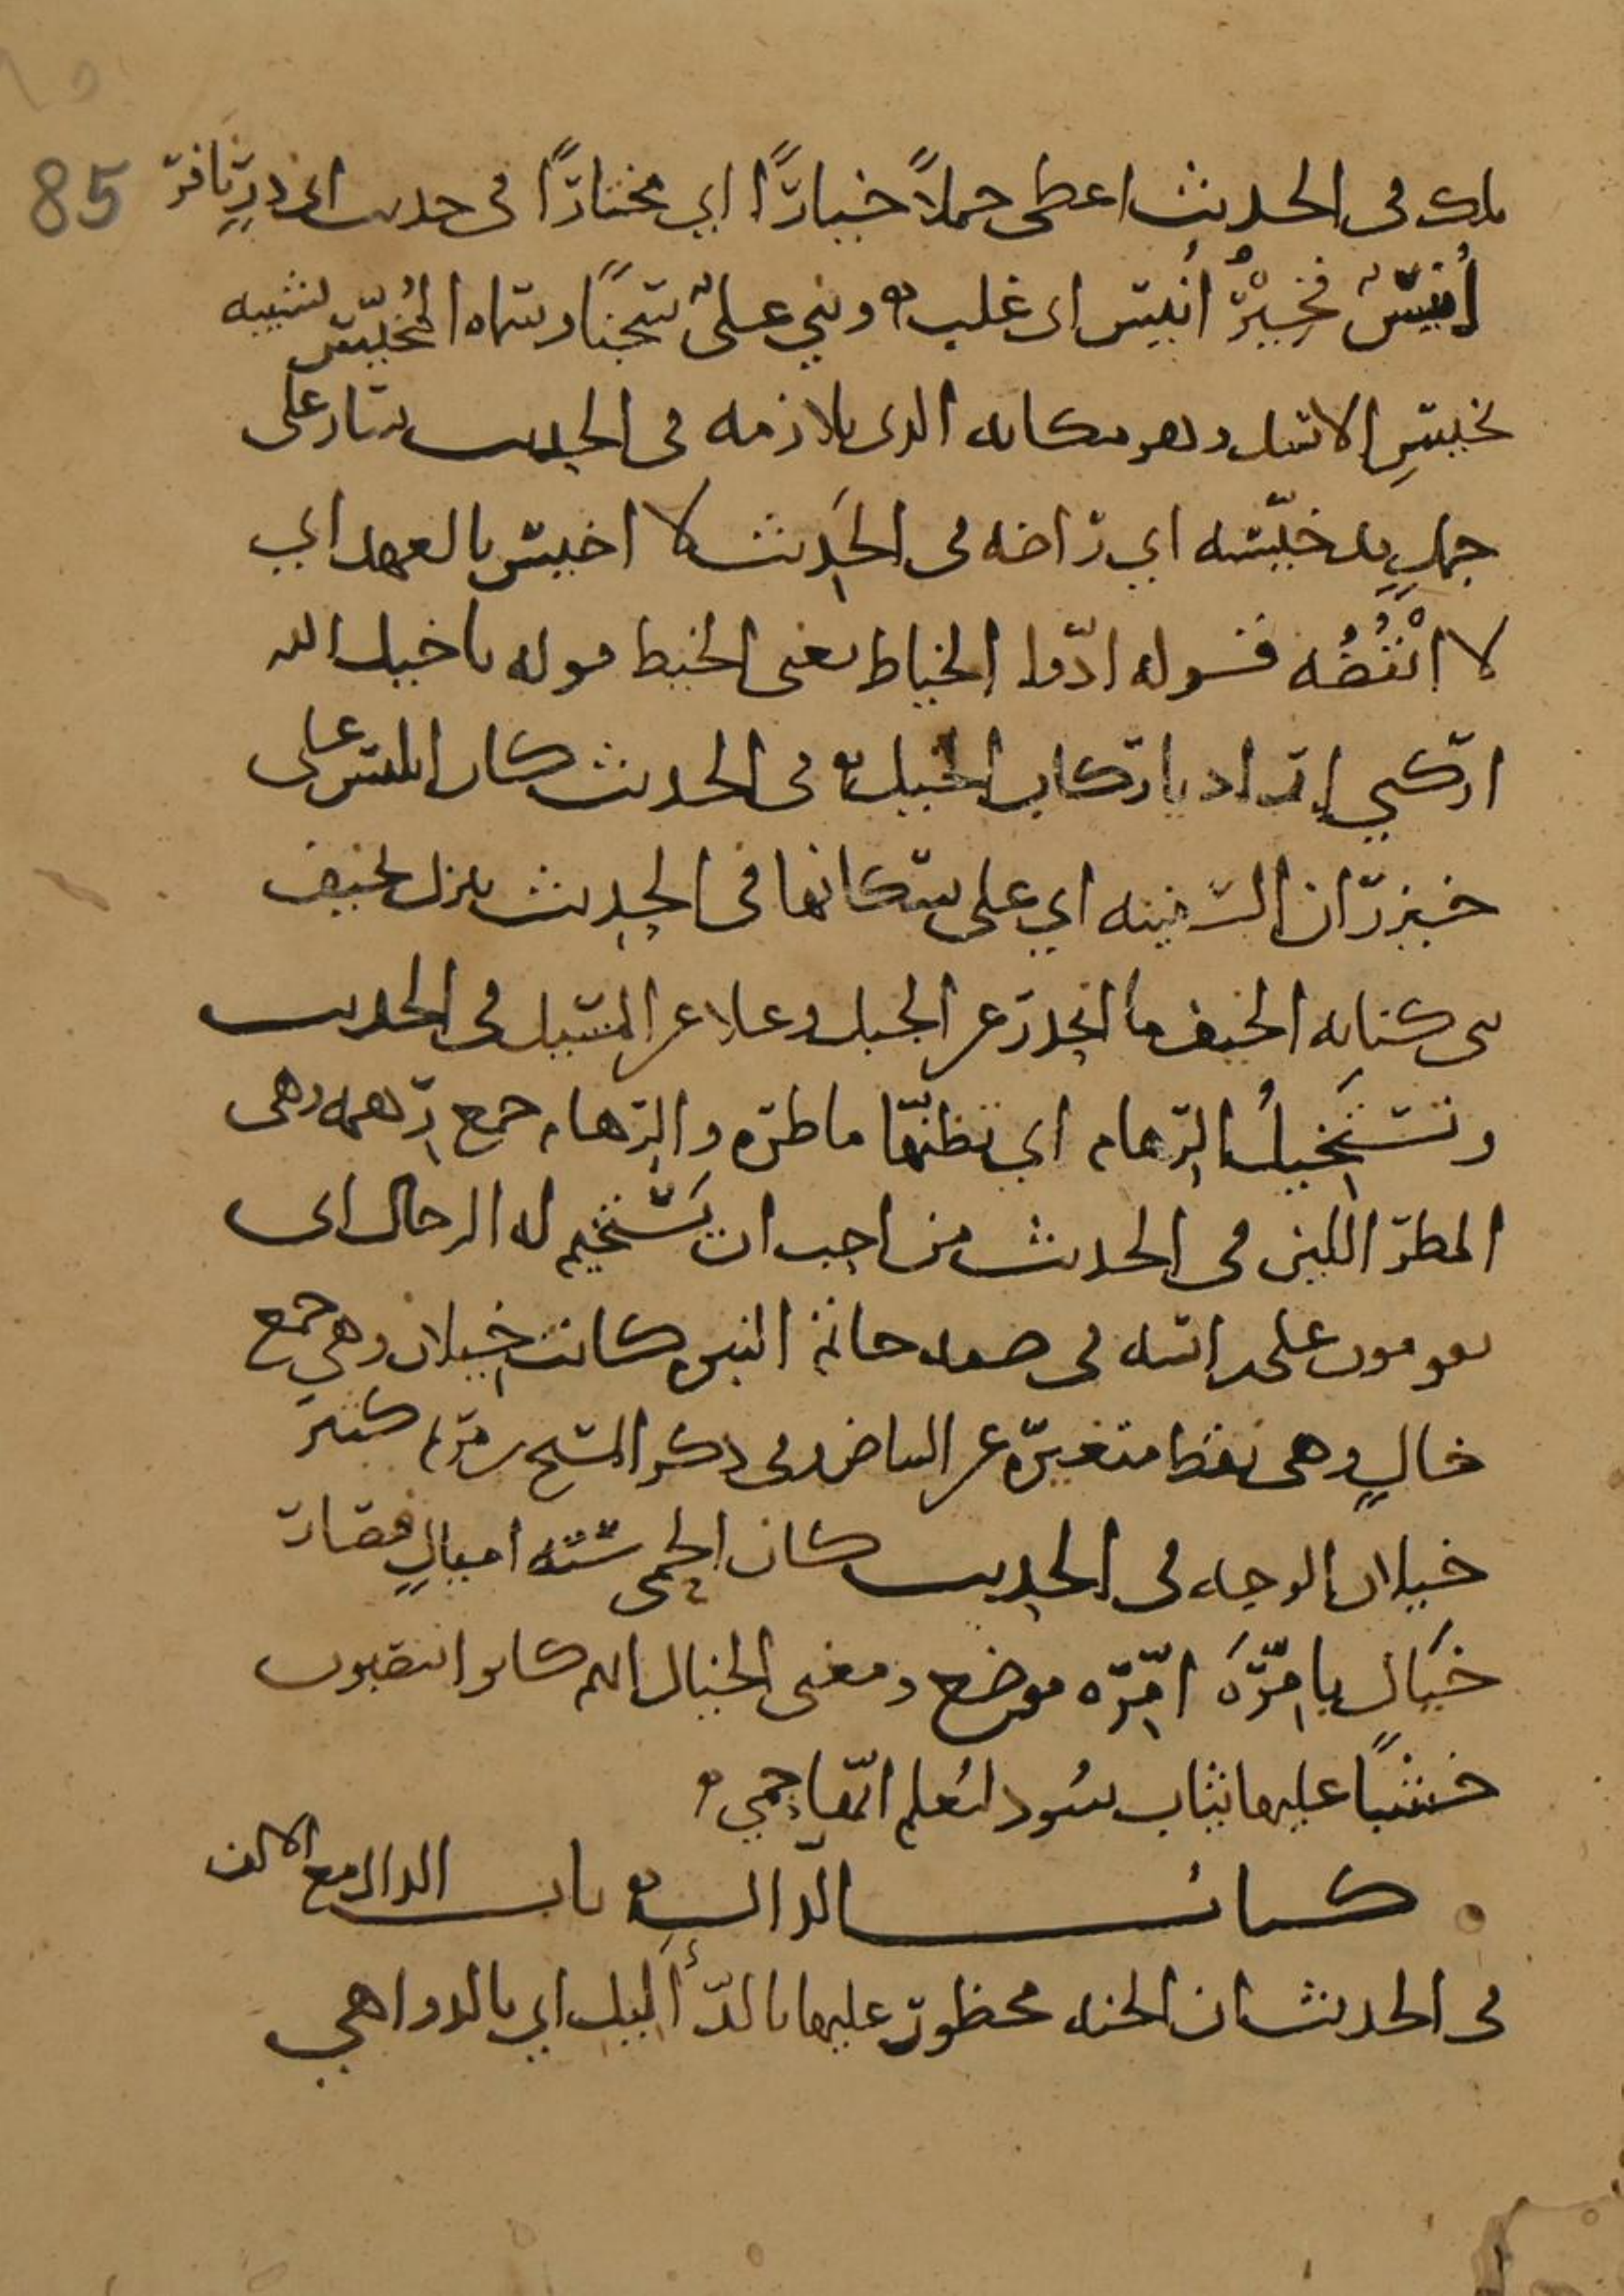 85
ملك في الحديث اعطى جملاً خيارًا اي مختارًا في حديث ابى ذرٍ نافر
أُنيسٌ فخُيِّرَ أنيس اى غلب وبنى علىٌّ سجنًا وسماه المُخيّس لشبيه
بخيسِ الاسد وهو مكانه الذى يلازمه فى الحديث سار على
جملٍ قد خيّسه اي راضه فى الحديث لا اخيس بالعهد اي
لا انْقُضُه قوله ادّوا الخياط يعنى الخيط قوله يا خيل الله
اركبي اراد يا ركاب الخيل فى الحديث كان ابليس على
خيزران السفينه اي على سكانها فى الحديث ننزل بخيف
بنى كنانه الخيف ما انحدر عن الجبل وعلا عن المسيل فى الحديث
ونستَخيلُ الرِّهام اي نظنّها ماطره والرِّهام جمع رِهمه وهى
المطر اللين فى الحديث من احب ان يَستَخيم له الرجال اى
يقومون على راسه فى صفه خاتم النبوه كانت خيلان وهى جمع
خالٍ وهى نقط متغيره عن البياض وفى ذكر المسيح كثير
خيلان الوجه فى الحديث كان الحِمى سته اميالٍ فصار
خيَال بامَّرَه امَّرَه موضع ومعنى الخيال انهم كانوا ينصبون
خشبًا عليها ثياب سُود ليُعلم انّها حِمى
كتاب الدال باب الدال مع الالف
فى الحديث ان الجنه محظور عليها بالدّأليل اي بالدواهي